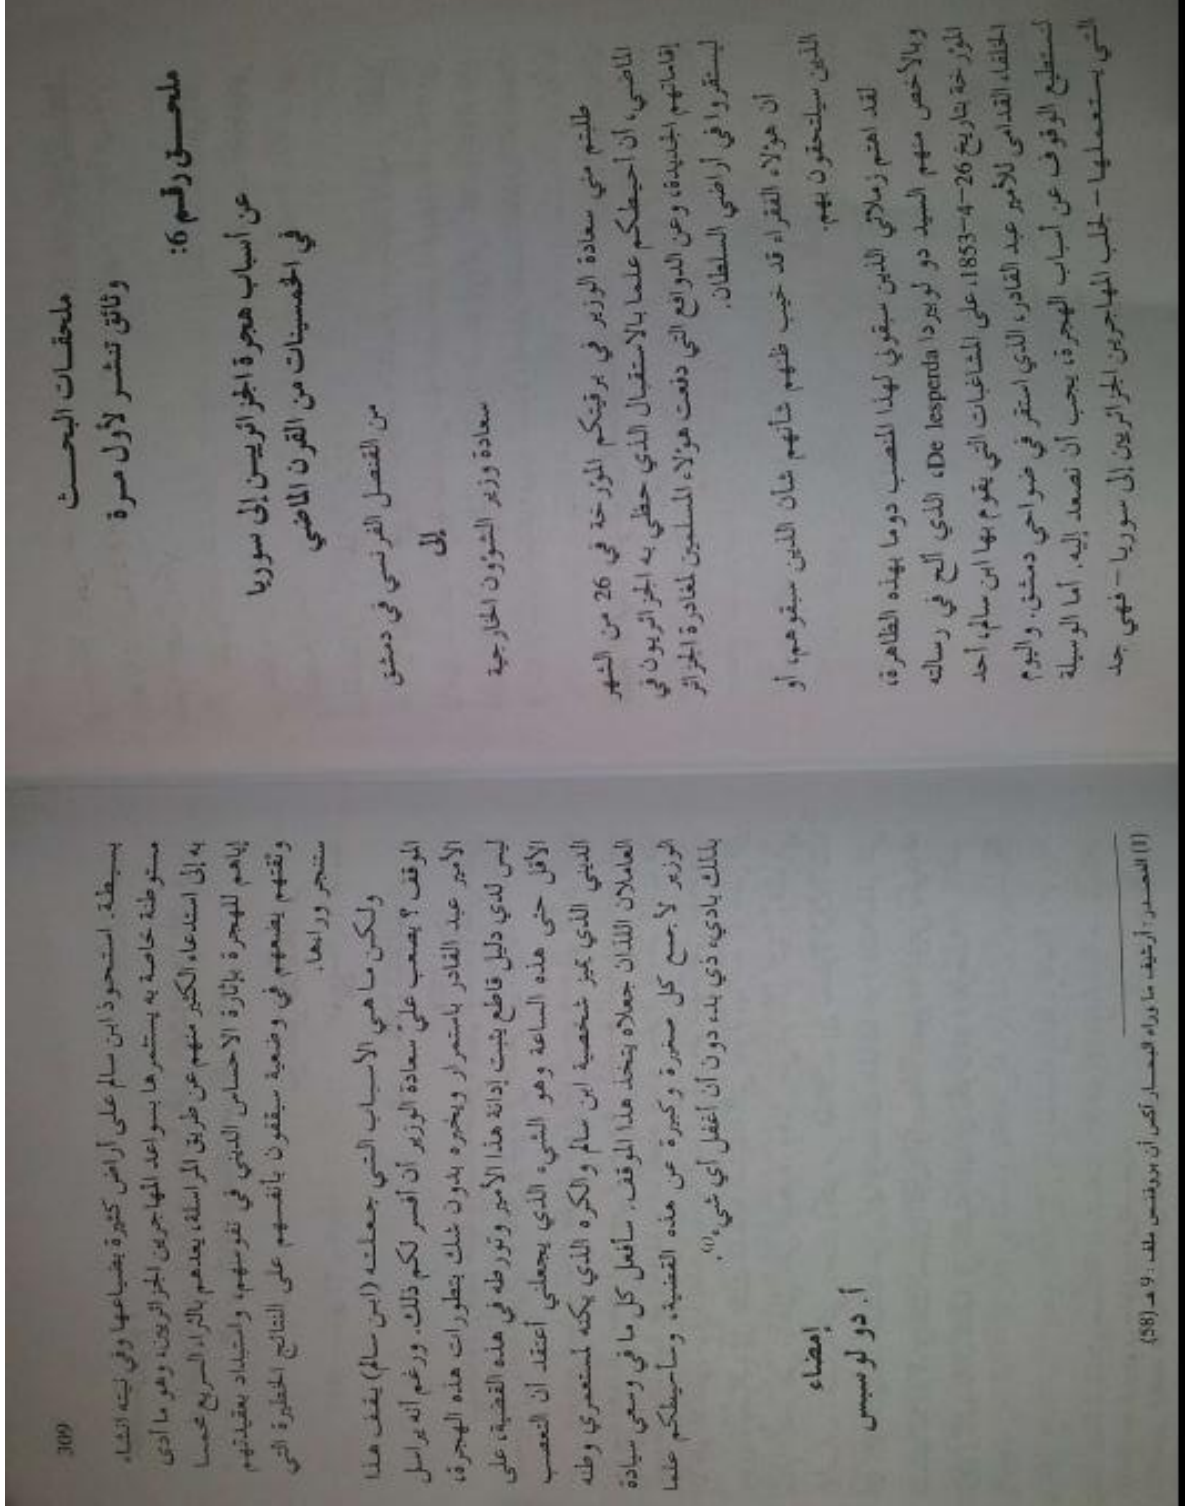 ملحقات البحث
وثائق تنشر لأول مرة
ملحق رقم 6:
عن أسباب هجرة الجزائريين إلى سوريا
في الخمسينات من القرن الماضي
من القنصل الفرنسي في دمشق
إلى
سعادة وزير الشؤون الخارجية
طلبتم مني سعادة الوزير في برقيتكم المؤرخة في 26 من الشهر
الماضي، أن أحيطكم علما بالاستقبال الذي حظي به الجزائريون في
إقاماتهم الجديدة، وعن الدوافع التي دفعت هؤلاء المسلمين لمغادرة الجزائر
ليستقروا في أراضي السلطان.
أن هؤلاء الفقراء قد خيب ظنهم شأنهم شأن الذين سبقوهم، أو
الذين سيلتحقون بهم.
لقد اهتم زملائي الذين سبقوني لهذا المنصب دوما بهذه الظاهرة،
وبالأخص منهم السيد دو لوبيردا De lesperda، الذي ألح في رسالته
المؤرخة بتاريخ 26-4-1853، على المشاغبات التي يقوم بها ابن سالم، أحد
الخلفاء القدامى للأمير عبد القادر، الذي استقر في ضواحي دمشق. واليوم
لنستطيع الوقوف عن أسباب الهجرة، يجب أن نصعد إليه. أما الوسيلة
التي يستعملها -لجلب المهاجرين الجزائريين إلى سوريا- فهي جد
309
بسيطة. استحوذ ابن سالم على أراض كثيرة بضياعها وفي نيته انشاء
مستوطنة خاصة به يستثمرها بسواعد المهاجرين الجزائريين، وهو ما أدى
به إلى استدعاء الكثير منهم عن طريق المراسلة، يعدهم بالثراء السريع محمسا
إياهم للهجرة بإثارة الاحساس الديني في نفوسهم، واستبداد بعقيدتهم
وثقتهم يضعهم في وضعية سيقفون بأنفسهم على النتائج الخطيرة التي
ستنجر وراءها.
ولكن ما هي الأسباب التي جعلته (ابن سالم) يقف هذا
الموقف؟ يصعب عليّ سعادة الوزير أن أفسر لكم ذلك. ورغم أنه يراسل
الأمير عبد القادر باستمرار ويخبره بدون شك بتطورات هذه الهجرة،
ليس لدي دليل قاطع يثبت إدانة هذا الأمير وتورطه في هذه القضية، على
الأقل حتى هذه الساعة وهو الشيء الذي يجعلني أعتقد أن التعصب
الديني الذي يميز شخصية ابن سالم والكره الذي يكنه لمستعمري وطنه
العاملان اللذان جعلاه يتخذ هذا الموقف. سأفعل كل ما في وسعي سيادة
الوزير لأجمع كل صغيرة وكبيرة عن هذه القضية. وسأحيطكم علما
بذلك بادي، ذي بدء دون أن أغفل أي شيء(1).
إمضاء
أ. دو لوسيبس
(1) المصدر: أرشيف ما وراء البحار آكس أن بروفنس ملف: 9 هـ (58)